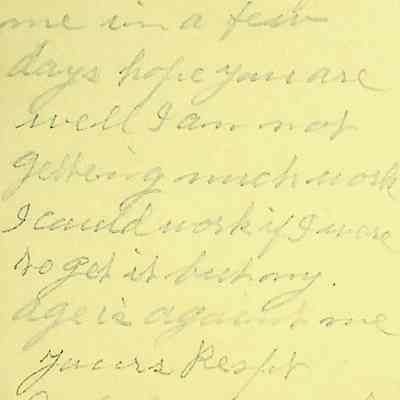 me in a few
days hope you are
well I am not
getting much work
I could work if I were
to get it but my.
age is against me
yours Respt